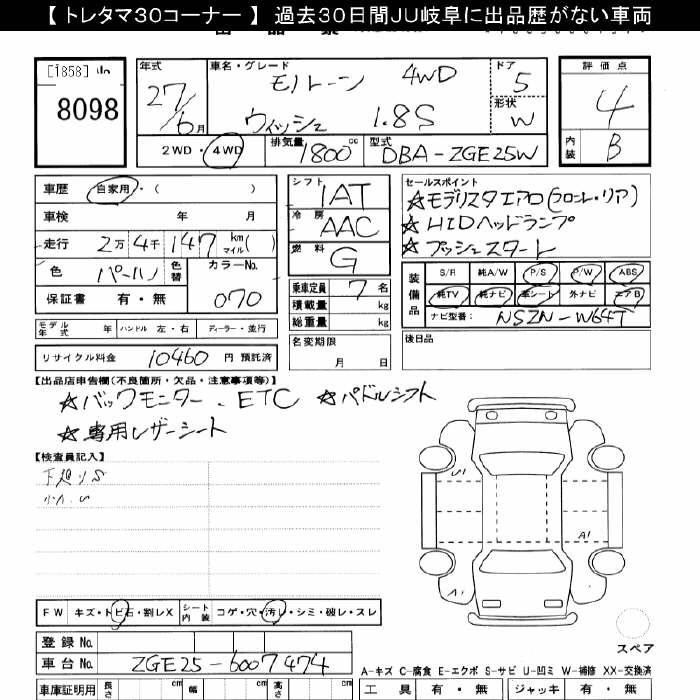 【 トレタマ３０コーナー 】 過去３０日間ＪＵ岐阜に出品歴がない車両
[1858]
8098
年式 車名・グレード ドア 評価点
27/6月 モノトーン 4WD 5 4
ウィッシュ 1.8S 形状 W
2WD・4WD 排気量 1800cc 型式 DBA-ZGE25W 内装 B
車歴 自家用・( )
車検 年 月
走行 2万 4千 147 km マイル( )
色 パール 色替 カラーNo. 070
保証書 有・無
シフト 1AT
冷房 AAC
燃料 G
乗車定員 7 名
積載量 kg
総重量 kg
セールスポイント
☆モデリスタエアロ(フロント・リア)
☆HIDヘッドランプ
☆プッシュスタート
装備品 S/R 純A/W P/S P/W ABS
純TV 純ナビ 革シート 外ナビ エアB
ナビ型番: NSZN-W64T
モデル年式 年 ハンドル 左・右 ディーラー・並行
名変期限 月 日
後日品
リサイクル料金 10460 円 預託済
【出品店申告欄(不良箇所・欠品・注意事項等)】
☆バックモニター . ETC ☆パドルシフト
☆専用レザーシート
【検査員記入】
U1
A1
A1
FW キズ・トビ石・割レX シート内装 コゲ・穴・汚レ・シミ・破レ・スレ
スペア
登録 No.
車台 No. ZGE25-6007474
A-キズ C-腐食 E-エクボ S-サビ U-凹ミ W-補修 XX-交換済
車庫証明用 長さ cm 幅 cm 高さ cm 工具 有・無 ジャッキ 有・無